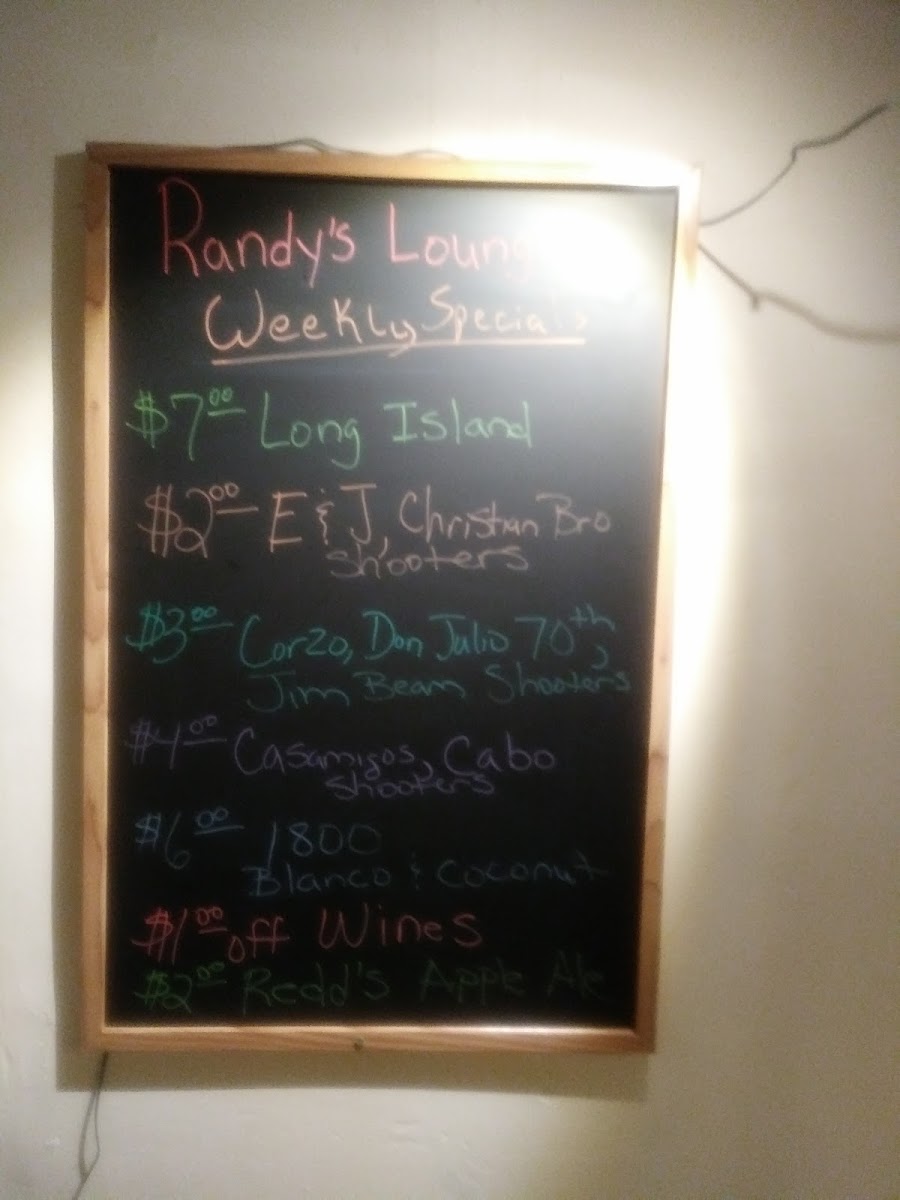 Randy's Loung
Weekly Specials
$7.00 Long Island
$2.00 E & J, Christian Bro
shooters
$3.00 Corzo, Don Julio 70th,
Jim Beam Shooters
$4.00 Casamigos, Cabo
shooters
$6.00 1800
Blanco & Coconut
$1.00 off Wines
$2.00 Redd's Apple Ale